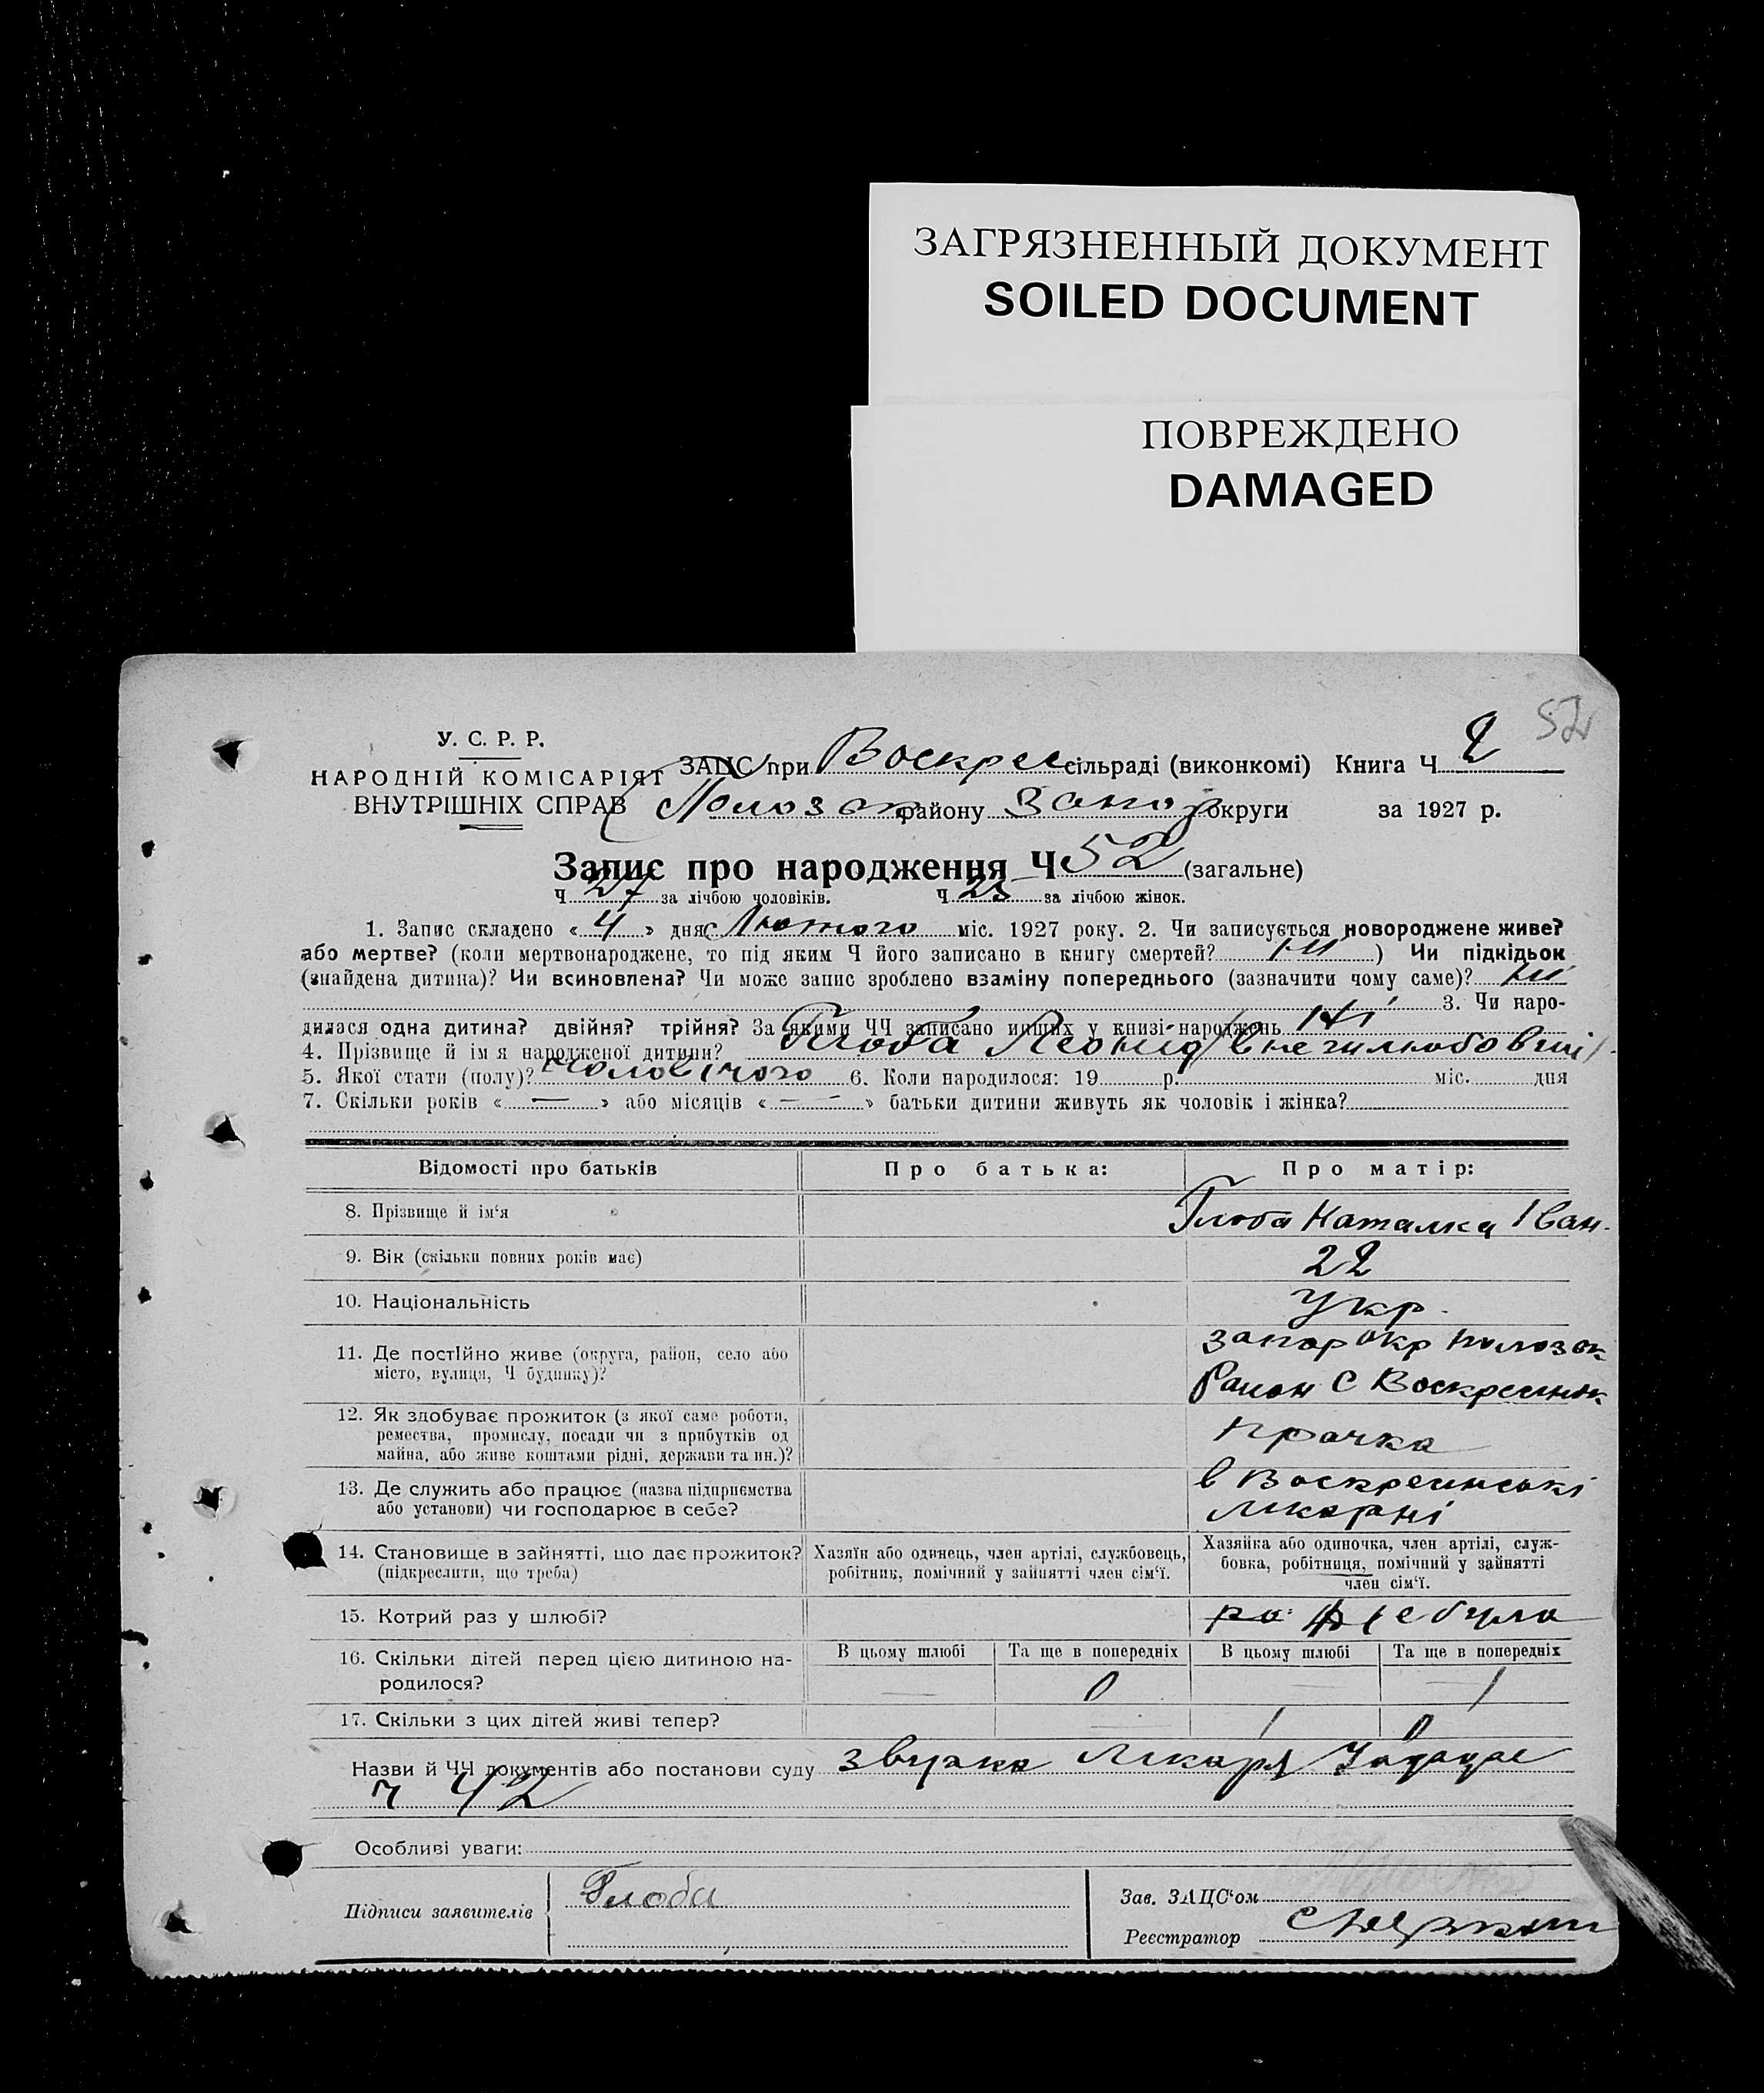 ЗАГРЯЗНЕННЫЙ ДОКУМЕНТ
SOILED DOCUMENT
ПОВРЕЖДЕНО
DAMAGED
52
У. С. Р. Р.
НАРОДНІЙ КОМІСАРІЯТ
ВНУТРІШНІХ СПРАВ
ЗАЦС при Воскрес сільраді (виконкомі) Книга Ч 2
Полозок району Запор округи за 1927 р.
Запис про народження Ч 52 (загальне)
Ч 27 за лічбою чоловіків. Ч 25 за лічбою жінок.
1. Запис складено « 4 » дня Лютого міс. 1927 року. 2. Чи записується новороджене живе?
або мертве? (коли мертвонароджене, то під яким Ч його записано в книгу смертей? ні ) Чи підкідьок
(знайдена дитина)? Чи всиновлена? Чи може запис зроблено взаміну попереднього (зазначити чому саме)? ні
3. Чи наро-
дилася одна дитина? двійня? трійня? За якими ЧЧ записано инших у книзі народжень Ні
4. Прізвище й імя народженої дитини? Глоба Леонид
5. Якої стати (полу)? чоловічого 6. Коли народилося: 19 р. міс. дня
7. Скільки років « — » або місяців « — » батьки дитини живуть як чоловік і жінка?
Відомості про батьків Про батька: Про матір:
8. Прізвище й ім'я Глоба Наталка Іван.
9. Вік (скільки повних років має) 22
10. Національність Укр.
11. Де постійно живе (округа, район, село або
місто, вулиця, Ч будинку)?
Запор окр Полозок
Район С Воскресінок
12. Як здобуває прожиток (з якої саме роботи,
ремества, промислу, посади чи з прибутків од
майна, або живе коштами рідні, держави та ин.)?
прачка
13. Де служить або працює (назва підприємства
або установи) чи господарює в себе?
в Воскресинські
лікарні
14. Становище в зайнятті, що дає прожиток?
(підкреслити, що треба)
Хазяїн або одинець, член артілі, службовець,
робітник, помічний у зайнятті член сім'ї.
Хазяйка або одиночка, член артілі, служ-
бовка, робітниця, помічний у зайнятті
член сім'ї.
15. Котрий раз у шлюбі? не була
16. Скільки дітей перед цією дитиною на-
родилося?
В цьому шлюбі Та ще в попередніх В цьому шлюбі Та ще в попередніх
— 0 — 1
17. Скільки з цих дітей живі тепер? — 1 0
Назви й ЧЧ документів або постанови суду Лікаря
ч 42
Особливі уваги:
Підписи заявителів Глоба
Зав. ЗАЦС'ом
Реєстратор